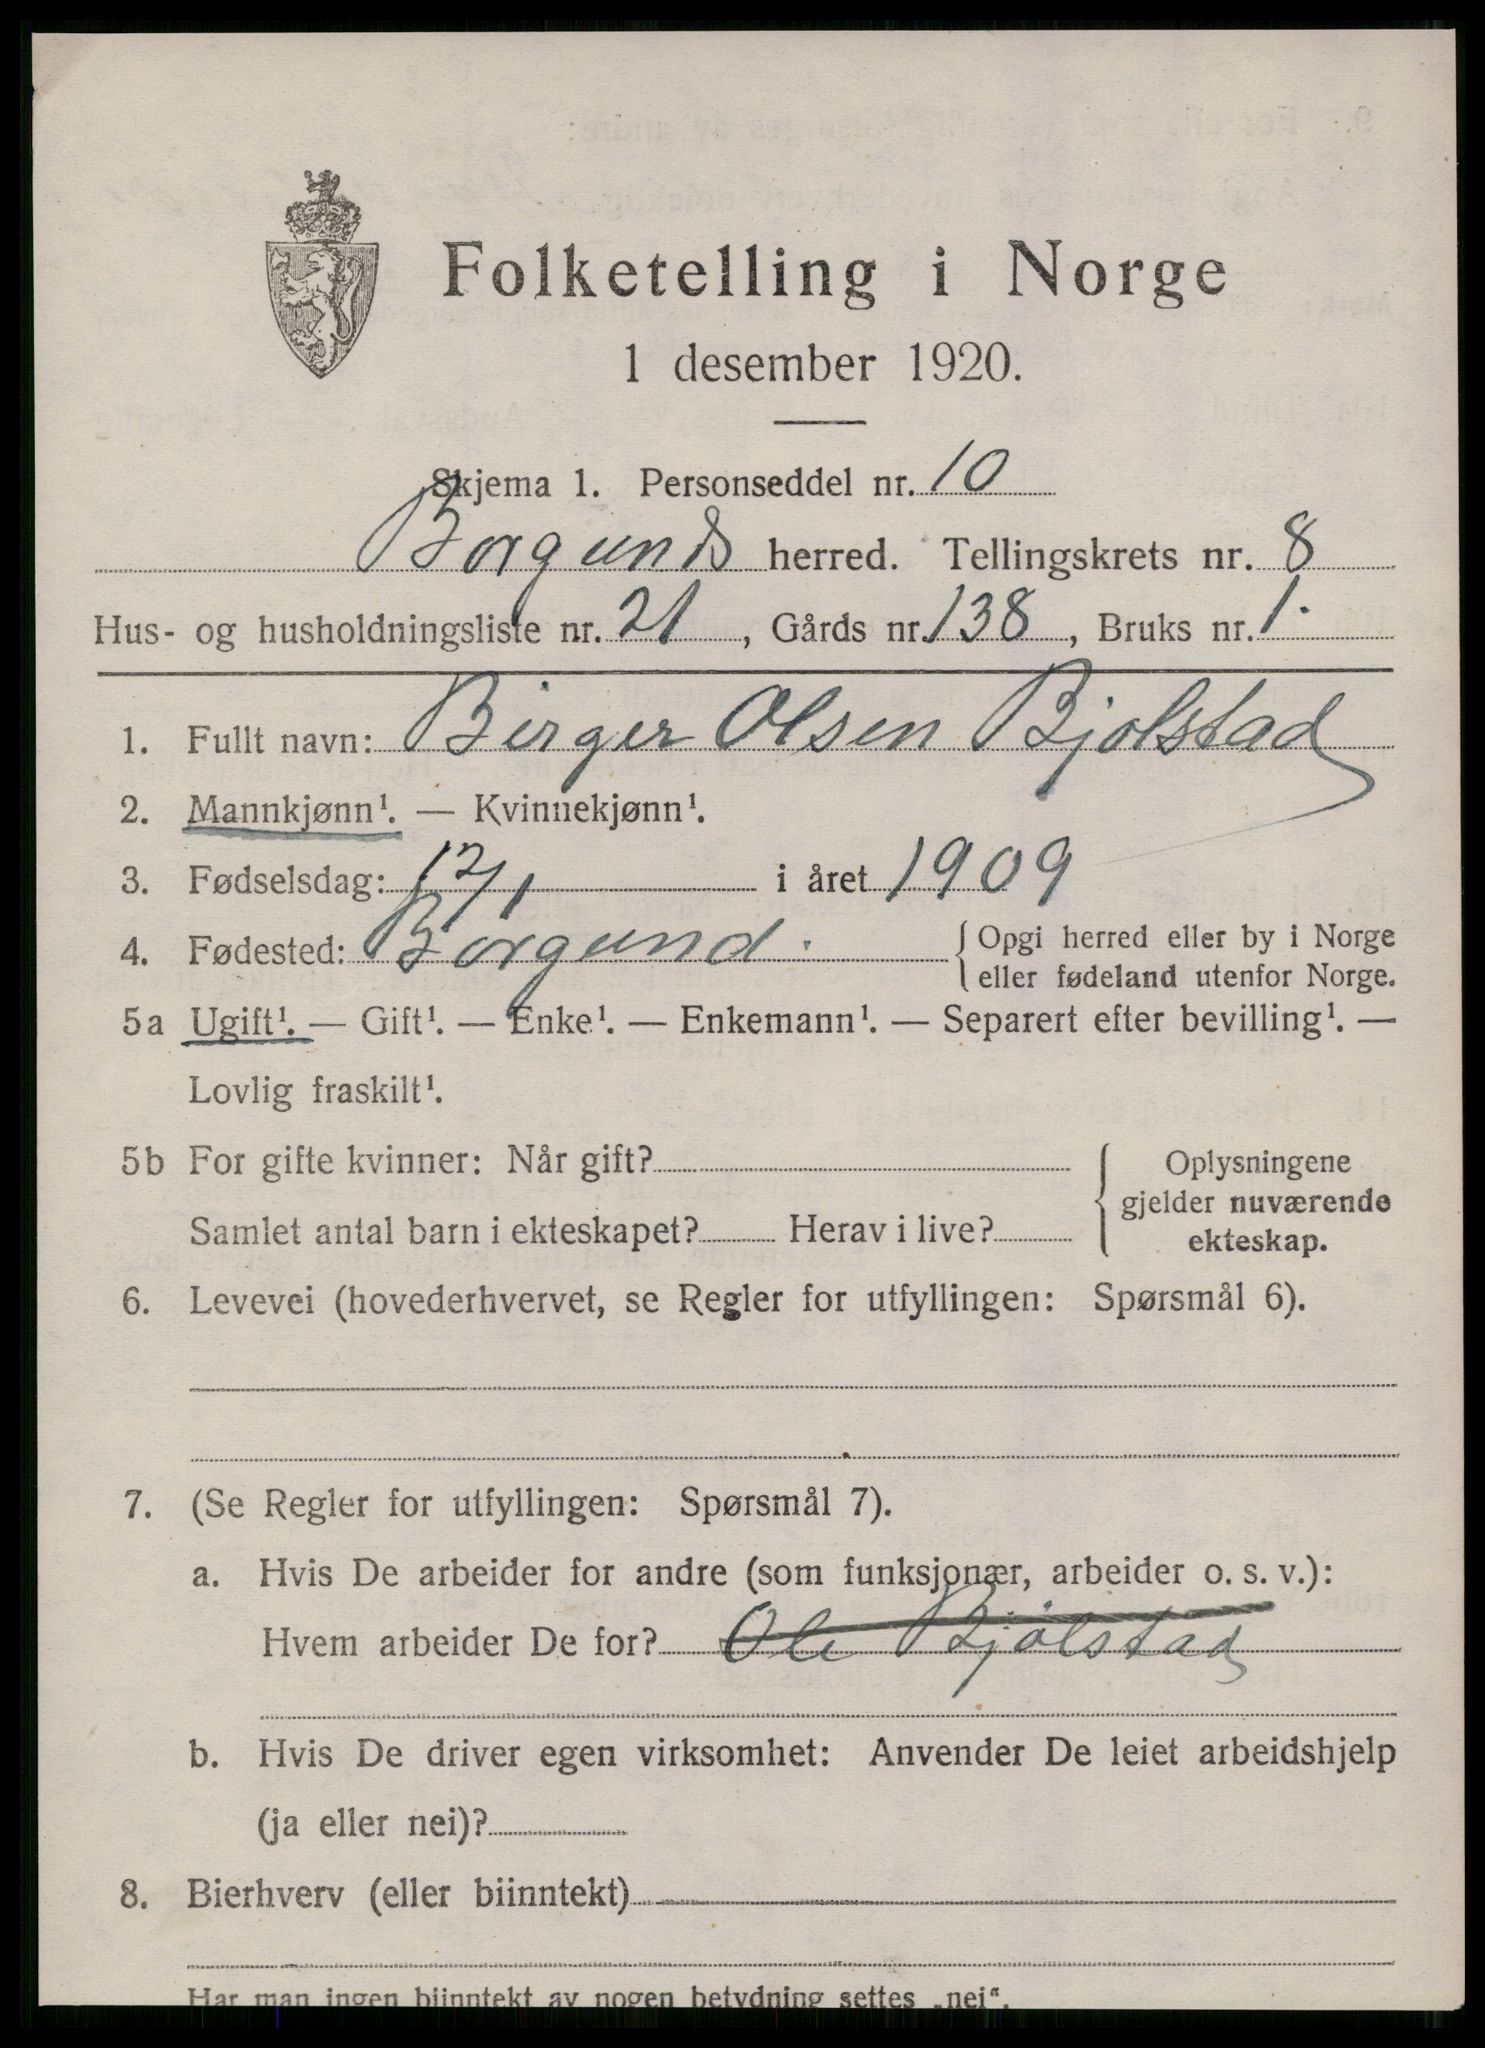 Folketelling i Norge
1 desember 1920.
Skjema 1. Personseddel nr. 10
Borgunds herred. Tellingskrets nr. 8
Hus- og husholdningsliste nr. 21, Gårds nr. 138, Bruks nr. 1.
1. Fullt navn: Birger Olsen Bjolstad
2. Mannkjønn¹. — Kvinnekjønn¹.
3. Fødselsdag: 12/1 i året 1909
4. Fødested: Borgund. {Opgi herred eller by i Norge
eller fødeland utenfor Norge.
5a Ugift¹. — Gift¹. — Enke¹. — Enkemann¹. — Separert efter bevilling¹. —
Lovlig fraskilt¹.
5b For gifte kvinner: Når gift? {Oplysningene
gjelder nuværende
Samlet antal barn i ekteskapet? Herav i live? ekteskap.
6. Levevei (hovederhvervet, se Regler for utfyllingen: Spørsmål 6).
7. (Se Regler for utfyllingen: Spørsmål 7).
a. Hvis De arbeider for andre (som funksjonær, arbeider o. s. v.):
Hvem arbeider De for? Ole Bjølstad
b. Hvis De driver egen virksomhet: Anvender De leiet arbeidshjelp
(ja eller nei)?
8. Bierhverv (eller biinntekt)
Har man ingen biinntekt av nogen betydning settes „nei“.